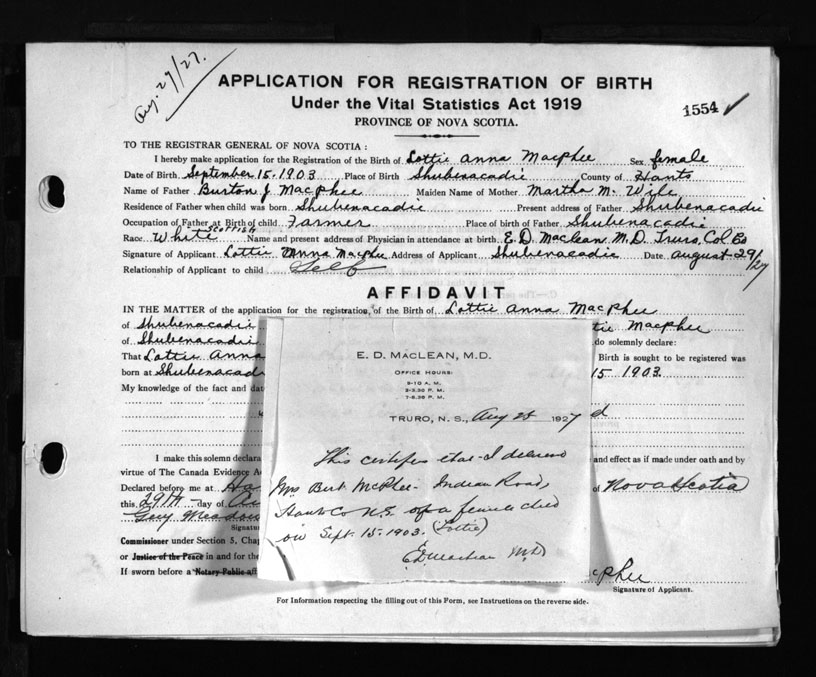 Aug. 29/27.
APPLICATION FOR REGISTRATION OF BIRTH
Under the Vital Statistics Act 1919
PROVINCE OF NOVA SCOTIA.
1554
TO THE REGISTRAR GENERAL OF NOVA SCOTIA :
I hereby make application for the Registration of the Birth of Lottie Anna Macphee Sex female
Date of Birth September 15. 1903 Place of Birth Shubenacadie County of Hants
Name of Father Burton J. MacPhee Maiden Name of Mother Martha M. Wile
Residence of Father when child was born Shubenacadie Present address of Father Shubenacadie
Occupation of Father at Birth of child Farmer Place of birth of Father Shubenacadie
Race White Scottish Name and present address of Physician in attendance at birth E. D. Maclean M.D. Truro, Col. Co
Signature of Applicant Lottie Anna Macphee Address of Applicant Shubenacadie Date August 29/27
Relationship of Applicant to child Self
AFFIDAVIT
IN THE MATTER of the application for the registration, of the Birth of Lottie Anna MacPhee
of Shubenacadie tie Macphee
of Shubenacadie do solemnly declare:
That Lottie Anna Birth is sought to be registered was
born at Shubenacadi 15 1903.
My knowledge of the fact and dat
d
I make this solemn declara and effect as if made under oath and by
virtue of The Canada Evidence A
Declared before me at Ha of Nova Scotia
this 29th day of
Signatu
Commissioner under Section 5, Chap
or Justice of the Peace in and for the
If sworn before a Notary Public aff cPhee
Signature of Applicant.
For Information respecting the filling out of this Form, see Instructions on the reverse side.
E. D. MACLEAN, M.D.
OFFICE HOURS:
9-10 A. M.
2-3.30 P. M.
7-8.30 P. M.
TRURO, N. S., Aug 28 1927
This certifies that I delivered
Mrs Burt. McPhee - Indian Road,
Hants Co N.S. of a female child
on Sept. 15. 1903. (Lottie)
E.D. Maclean M.D.